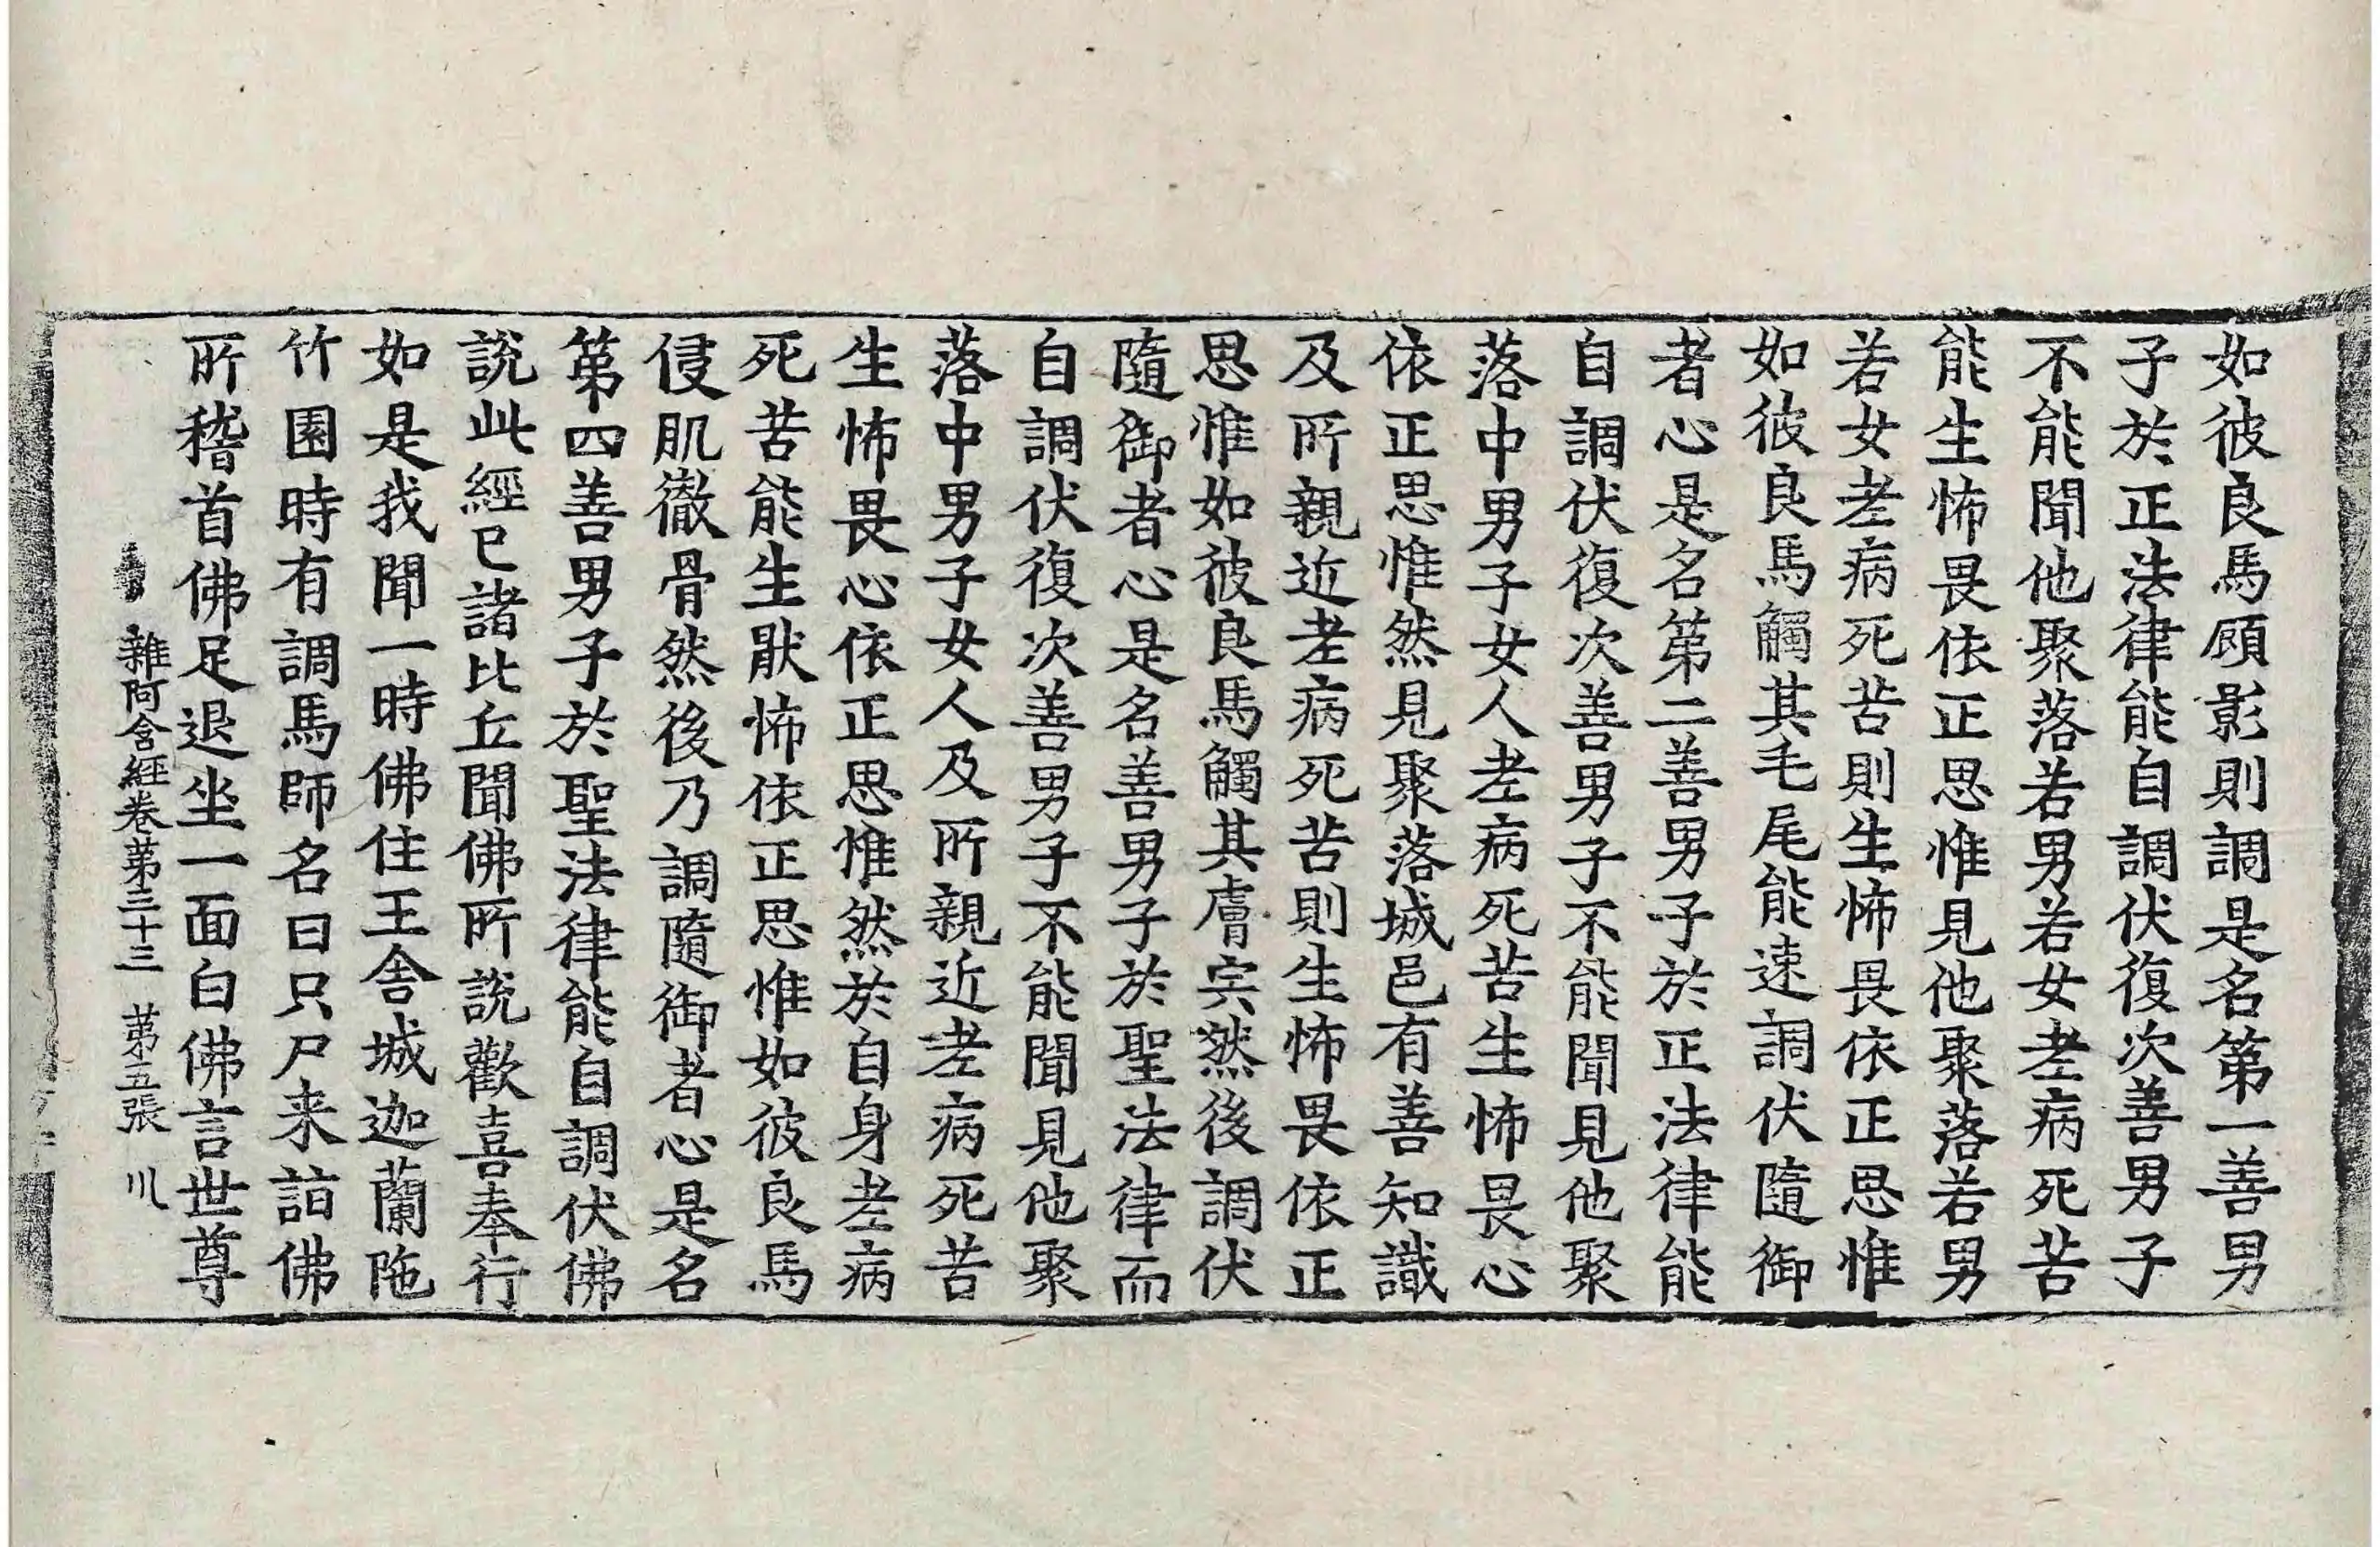 如彼良馬顧影則調是名第一善男
子於正法律能自調伏復次善男子
不能聞他聚落若男若女老病死苦
能生怖畏依正思惟見他聚落若男
若女老病死苦則生怖畏依正思惟
如彼良馬觸其毛尾能速調伏隨御
者心是名第二善男子於正法律能
自調伏復次善男子不能聞見他聚
落中男子女人老病死苦生怖畏心
依正思惟然見聚落城邑有善知識
及所親近老病死苦則生怖畏依正
思惟如彼良馬觸其膚宍然後調伏
隨御者心是名善男子於聖法律而
自調伏復次善男子不能聞見他聚
落中男子女人及所親近老病死苦
生怖畏心依正思惟然於自身老病
死苦能生猒怖依正思惟如彼良馬
侵肌徹骨然後乃調隨御者心是名
第四善男子於聖法律能自調伏佛
說此經已諸比丘聞佛所說歡喜奉行
如是我聞一時佛住王舍城迦蘭陁
竹園時有調馬師名曰只尸来詣佛
所稽首佛足退坐一面白佛言世尊
雜阿含経卷第三十三 第五張